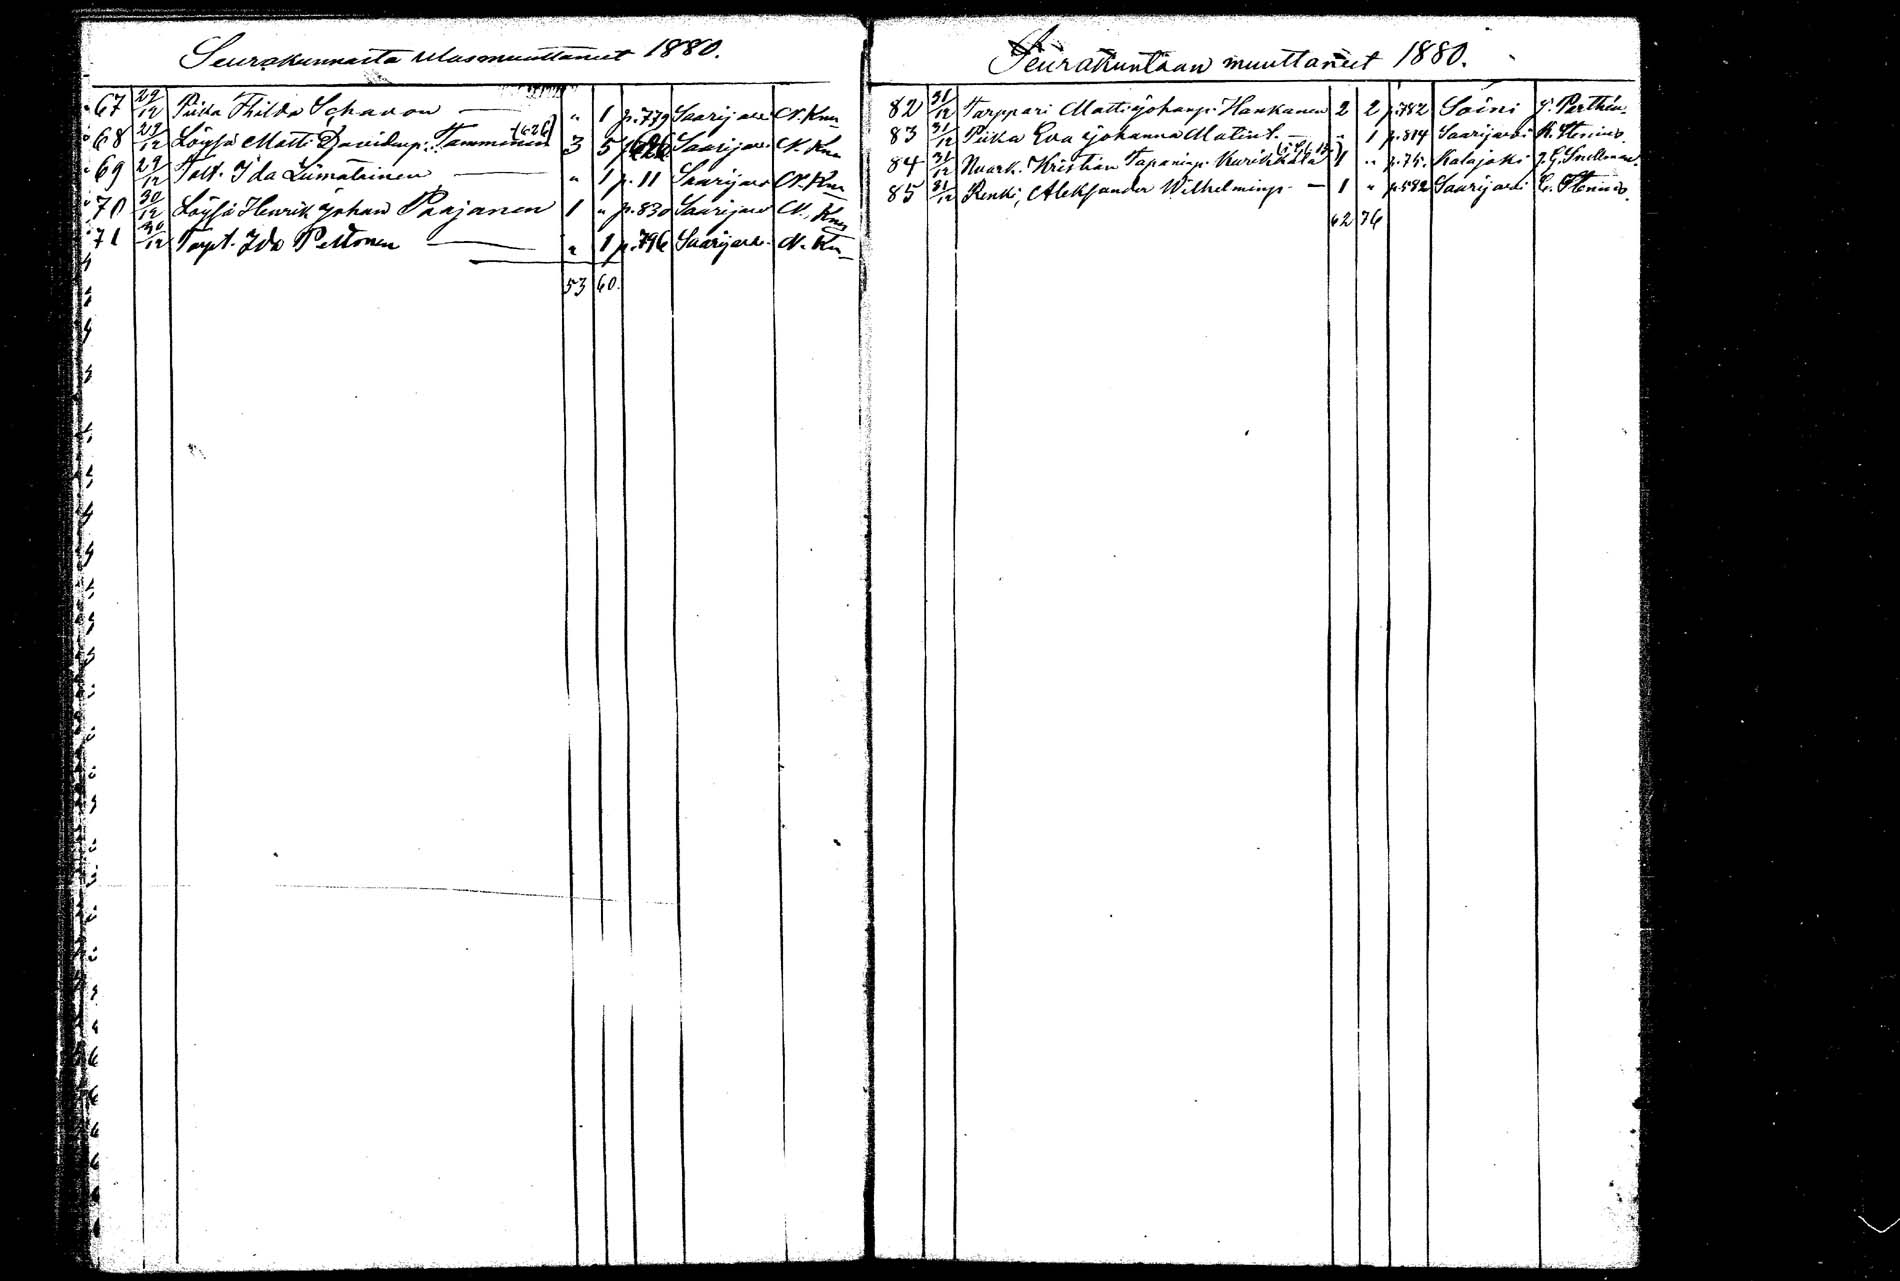 Seurakunnasta ulosmuuttaneet 1880.
67 29/12 Piika Thilda Schavon — " 1 p. 779 Saarijärvi N. Knu
68 29/12 Löysä Matti Davidinp. Tamminen (626) 3 5 p. 626 Saarijärvi N. Knu
69 29/12 Talt. Ida Liimatainen — " 1 p. 11 Saarijärvi N. Knu
70 30/12 Löysä Henrik Johan Paajanen 1 " p. 830 Saarijärvi N. Knu
71 30/12 Torpt. Ida Peltonen — " 1 p. 796 Saarijärvi N. Knu
53 60.
Seurakuntaan muuttaneet 1880.
82 31/12 Torppari Matti Johanp. Hankanen 2 2 p. 782 Soini J. Perthén
83 31/12 Piika Eva Johanna Matint. — " 1 p. 814 Saarijärvi K. Stenius
84 31/12 Nuork. Kristian Tapaninp. Kurikkala 1 " p. 75. Kalajoki J. G. Snellman
85 31/12 Renki, Aleksander Wilhelminp. — 1 " p. 582 Saarijärvi C. Stenius.
62 76